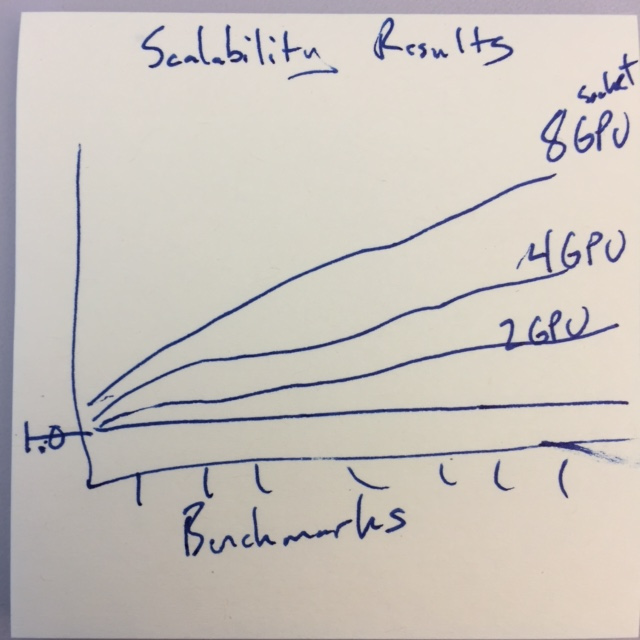 Scalability Results
socket
8 GPU
4 GPU
2 GPU
1.0
Benchmarks